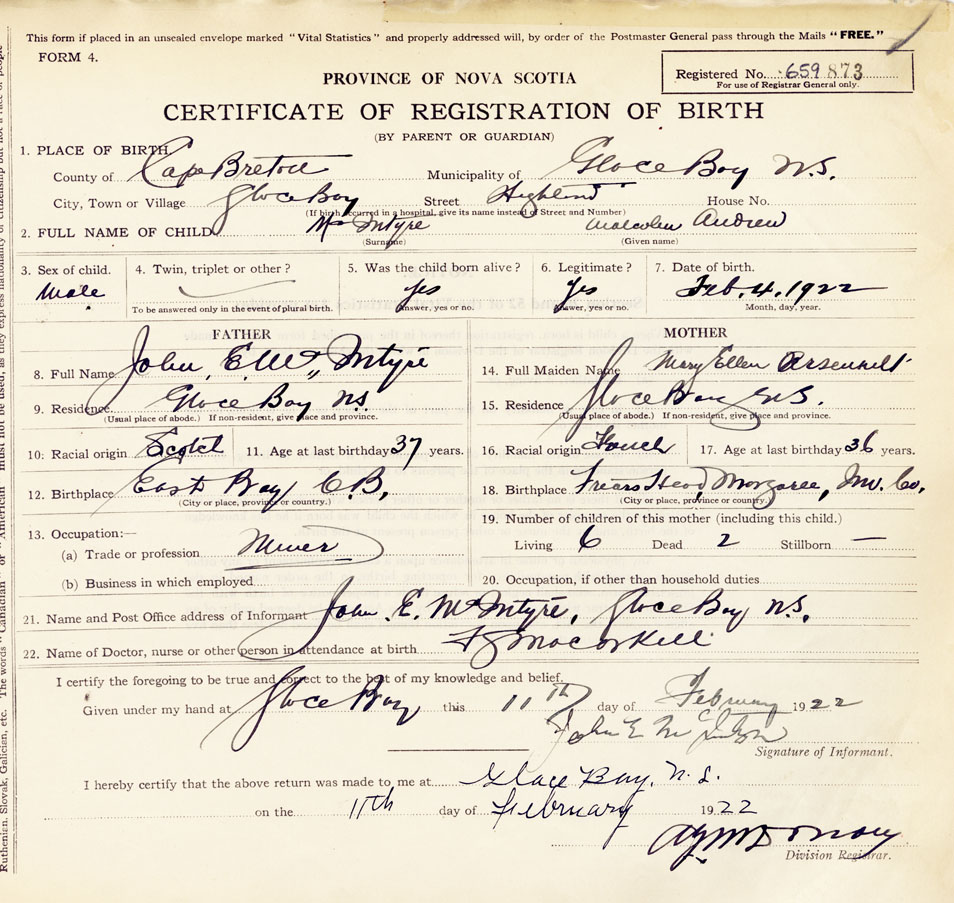 This form if placed in an unsealed envelope marked "Vital Statistics" and properly addressed will, by order of the Postmaster General pass through the Mails "FREE."
FORM 4.
PROVINCE OF NOVA SCOTIA
Registered No. 659 873
For use of Registrar General only.
CERTIFICATE OF REGISTRATION OF BIRTH
(BY PARENT OR GUARDIAN)
1. PLACE OF BIRTH
County of Cape Breton Municipality of Glace Bay N.S.
City, Town or Village Glace Bay Street Highland House No.
(If birth occurred in a hospital, give its name instead of Street and Number)
2. FULL NAME OF CHILD McIntyre Malcolm Andrew
(Surname) (Given name)
3. Sex of child. 4. Twin, triplet or other? 5. Was the child born alive? 6. Legitimate? 7. Date of birth.
Male Yes Yes Feb. 4. 1922
To be answered only in the event of plural birth. Answer, yes or no. Answer, yes or no. Month, day, year.
FATHER MOTHER
8. Full Name John E. McIntyre 14. Full Maiden Name Mary Ellen
9. Residence Glace Bay N.S. 15. Residence Glace Bay N.S.
(Usual place of abode.) If non-resident, give place and province. (Usual place of abode.) If non-resident, give place and province.
10: Racial origin Scotch 11. Age at last birthday 37 years. 16. Racial origin French 17. Age at last birthday 36 years.
12. Birthplace East Bay C.B. 18. Birthplace Friars Head, Margaree, Inv. Co.
(City or place, province or country.) (City or place, province or country)
19. Number of children of this mother (including this child.)
13. Occupation:—
Living 6 Dead 2 Stillborn —
(a) Trade or profession Miner
(b) Business in which employed 20. Occupation, if other than household duties
21. Name and Post Office address of Informant John E. McIntyre, Glace Bay N.S.
22. Name of Doctor, nurse or other person in attendance at birth
I certify the foregoing to be true and correct to the best of my knowledge and belief.
Given under my hand at Glace Bay this 11th day of February 1922
John E McIntyre
Signature of Informant.
I hereby certify that the above return was made to me at Glace Bay, N.S.
on the 11th day of February 1922
Division Registrar.